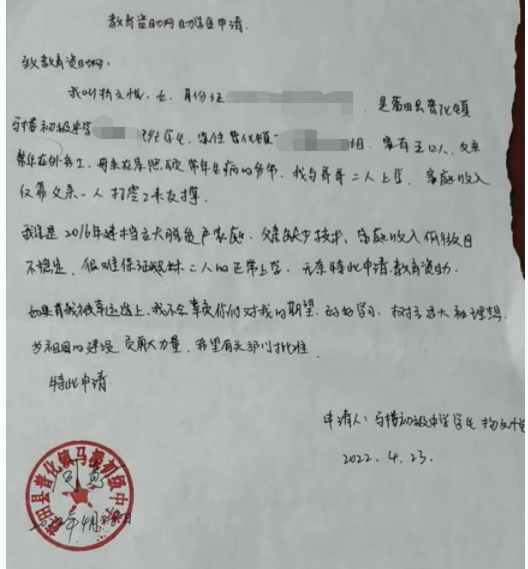 教育资助网助学金申请
致教育资助网:
我叫杨文悦,女,身份证 是蓝田县普化镇
马楼初级中学 学生,家住普化镇 组,家有五口人,父亲
常年在外务工,母亲在家照顾常年生病的爷爷,我与哥哥二人上学,家庭收入
仅靠父亲一人打零工来支撑。
我家是2016年建档立卡脱贫户家庭,父亲缺少技术,家庭收入低微且
不稳定,很难保证兄妹二人的正常上学,无奈特此申请教育资助。
如果有我被幸运选上,我不会辜负你们对我的期望,好好学习,树立远大的理想
为祖国的建设贡献力量,希望有关部门批准
特此申请
申请人:马楼初级中学学生 杨文悦
2022.4.23.
蓝田县普化镇马楼初级中学